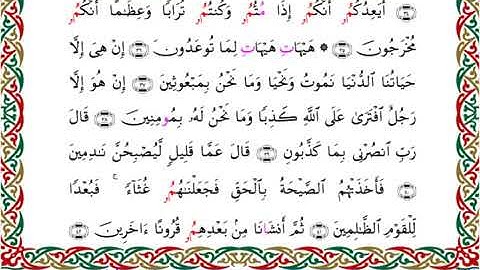 أَيَعِدُكُمُۥٓ أَنَّكُمُۥٓ إِذَا مُتُّمُۥ وَكُنتُمُۥ تُرَابٗا وَعِظَٰمًا أَنَّكُمُۥ
مُخْرَجُونَ ۞ هَيْهَاتِ هَيْهَاتِ لِمَا تُوعَدُونَ إِنْ هِيَ إِلَّا
حَيَاتُنَا ٱلدُّنْيَا نَمُوتُ وَنَحْيَا وَمَا نَحْنُ بِمَبْعُوثِينَ إِنْ هُوَ إِلَّا
رَجُلٌ ٱفْتَرَىٰ عَلَى ٱللَّهِ كَذِبٗا وَمَا نَحْنُ لَهُۥ بِمُومِنِينَ قَالَ
رَبِّ ٱنصُرْنِي بِمَا كَذَّبُونِ قَالَ عَمَّا قَلِيلٖ لَّيُصْبِحُنَّ نَٰدِمِينَ
فَأَخَذَتْهُمُ ٱلصَّيْحَةُ بِٱلْحَقِّ فَجَعَلْنَٰهُمُۥ غُثَآءٗ ۚ فَبُعْدٗا
لِّلْقَوْمِ ٱلظَّٰلِمِينَ ثُمَّ أَنشَانَا مِنۢ بَعْدِهِمُۥ قُرُونًا ءَاخَرِينَ